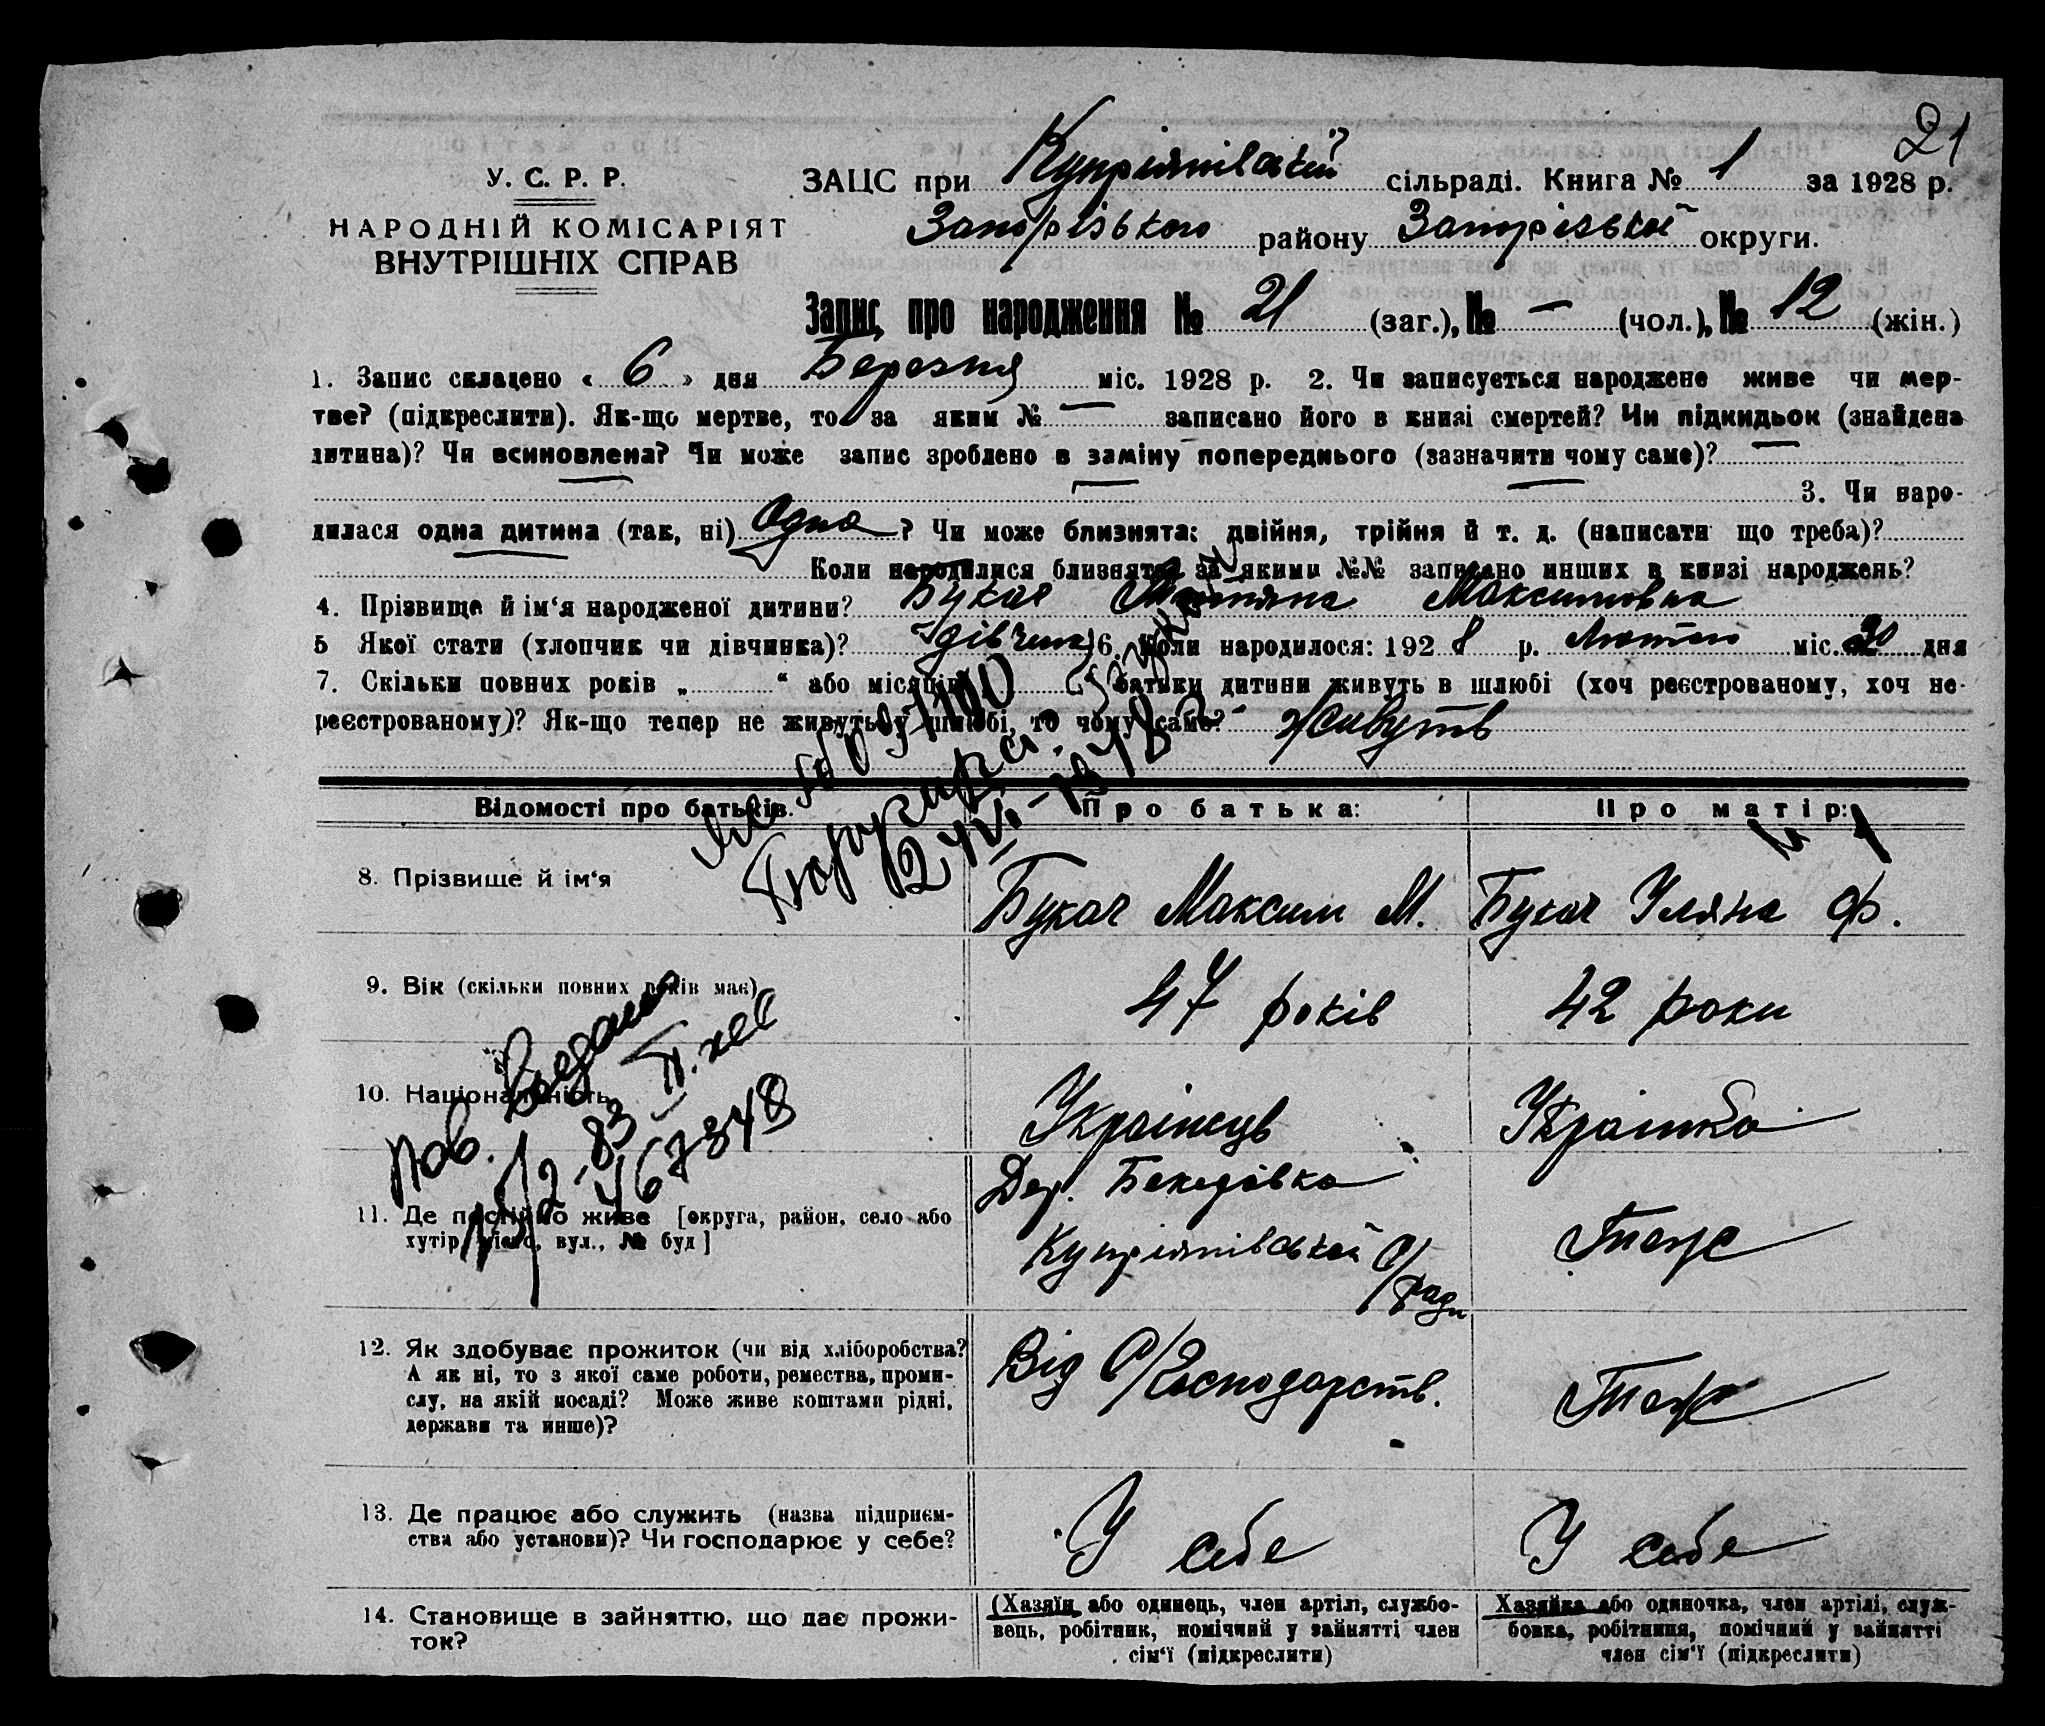 21
У. С. Р. Р.
НАРОДНІЙ КОМІСАРІЯТ
ВНУТРІШНІХ СПРАВ
ЗАЦС при Купріянівській сільраді. Книга № 1 за 1928 р.
Запорізького району Запорізької округи.
Запис про народження № 21 (заг.), № — (чол.), № 12 (жін.)
1. Запис складено « 6 » дня Березня міс. 1928 р. 2. Чи записується народжене живе чи мер-
тве? (підкреслити). Як-що мертве, то за яким № — записано його в книзі смертей? Чи підкидьок (знайдена
дитина)? Чи всиновлена? Чи може запис зроблено в заміну попереднього (зазначити чому саме)? —
3. Чи наро-
дилася одна дитина (так, ні) Одна? Чи може близнята: двійня, трійня й т. д. (написати що треба)?
Коли народилися близнята за якими №№ записано инших в книзі народжень?
4. Прізвище й ім‘я народженої дитини? Букач Максимовна
5 Якої стати (хлопчик чи дівчинка)? дівчина 6. Коли народилося: 1928 р. Лютого міс. 20 дня
7. Скільки повних років „ “ або місяців батьки дитини живуть в шлюбі (хоч реєстрованому, хоч не-
реєстрованому)? Як-що тепер не живуть у шлюбі, то чому саме? Живуть
Відомості про батьків. Про батька: Про матір:
8. Прізвище й ім‘я Букач Максим М. Букач Уляна Ф.
9. Вік (скільки повних років має) 47 років 42 роки
10. Національність Українець Українка
11. Де постійно живе [округа, район, село або Дер.
хутір, місто, вул., № буд] Купріянівської С/Ради Тоже
12. Як здобуває прожиток (чи від хліборобства? Від С/Господарств. Тоже
А як ні, то з якої саме роботи, ремества, проми-
слу, на якій посаді? Може живе коштами рідні,
держави та инше)?
13. Де працює або служить (назва підприєм- У себе У себе
ства або установи)? Чи господарює у себе?
14. Становище в зайняттю, що дає прожи-
ток?
(Хазяїн або одинець, член артілі, службо-
вець, робітник, помічний у зайнятті член
сім‘ї (підкреслити)
Хазяйка або одиночка, член артілі, служ-
бовка, робітниця, помічний у зайнятті
член сім‘ї (підкреслити)
467348